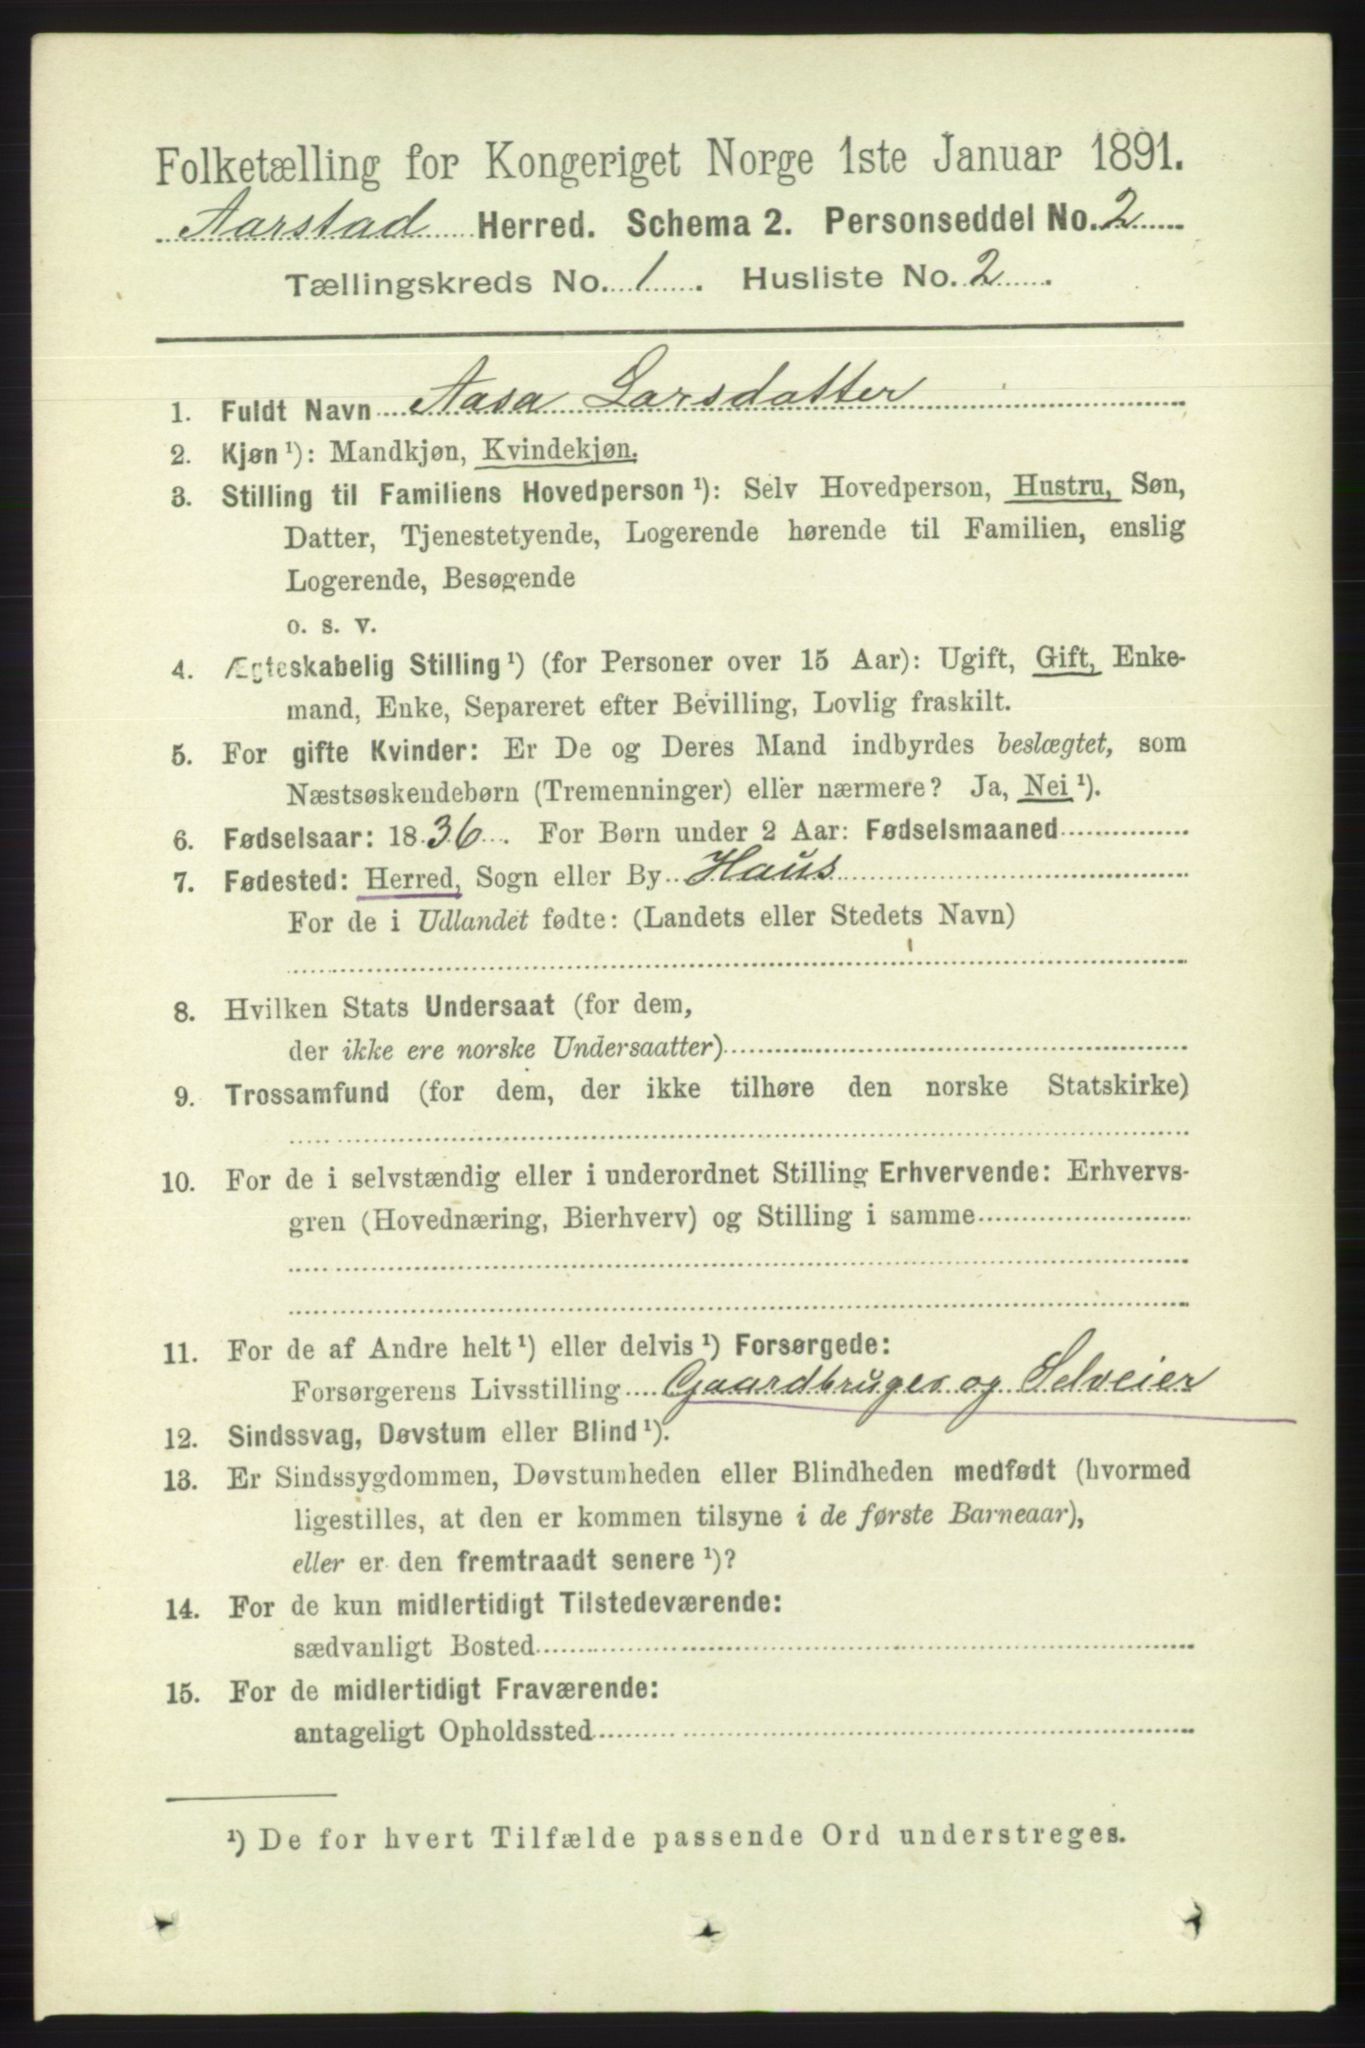 Folketælling for Kongeriget Norge 1ste Januar 1891.
Aarstad Herred. Schema 2. Personseddel No. 2
Tællingskreds No. 1. Husliste No. 2.
1. Fuldt Navn Aasa Larsdatter
2. Kjøn ¹): Mandkjøn, Kvindekjøn.
3. Stilling til Familiens Hovedperson ¹): Selv Hovedperson, Hustru, Søn,
Datter, Tjenestetyende, Logerende hørende til Familien, enslig
Logerende, Besøgende
o. s. v.
4. Ægteskabelig Stilling ¹) (for Personer over 15 Aar): Ugift, Gift, Enke-
mand, Enke, Separeret efter Bevilling, Lovlig fraskilt.
5. For gifte Kvinder: Er De og Deres Mand indbyrdes beslægtet, som
Næstsøskendebørn (Tremenninger) eller nærmere? Ja, Nei ¹).
6. Fødselsaar: 1836. For Børn under 2 Aar: Fødselsmaaned
7. Fødested: Herred, Sogn eller By Haus
For de i Udlandet fødte: (Landets eller Stedets Navn)
8. Hvilken Stats Undersaat (for dem,
der ikke ere norske Undersaatter)
9. Trossamfund (for dem, der ikke tilhøre den norske Statskirke)
10. For de i selvstændig eller i underordnet Stilling Erhvervende: Erhvervs-
gren (Hovednæring, Bierhverv) og Stilling i samme
11. For de af Andre helt ¹) eller delvis ¹) Forsørgede:
Forsørgerens Livsstilling Gaardbruger og Selveier
12. Sindssvag, Døvstum eller Blind ¹).
13. Er Sindssygdommen, Døvstumheden eller Blindheden medfødt (hvormed
ligestilles, at den er kommen tilsyne i de første Barneaar),
eller er den fremtraadt senere ¹)?
14. For de kun midlertidigt Tilstedeværende:
sædvanligt Bosted
15. For de midlertidigt Fraværende:
antageligt Opholdssted
¹) De for hvert Tilfælde passende Ord understreges.